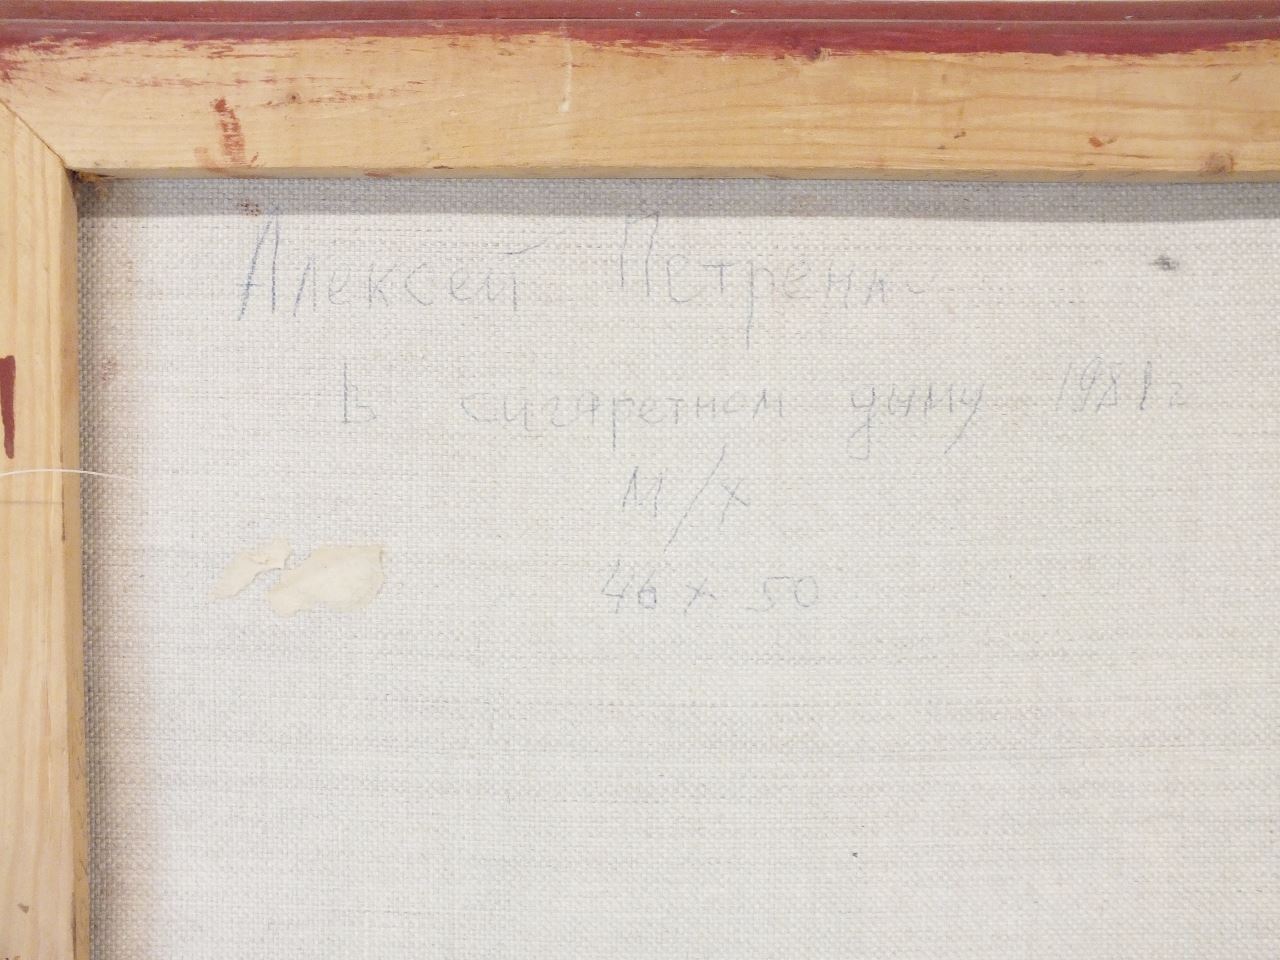 Алексей Петренко
В сигаретном дыму 1981г
М/Х
46 х 50